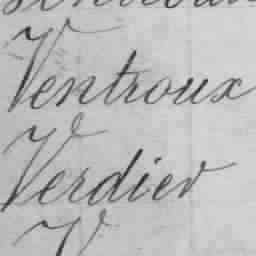 Ventroux
Verdier